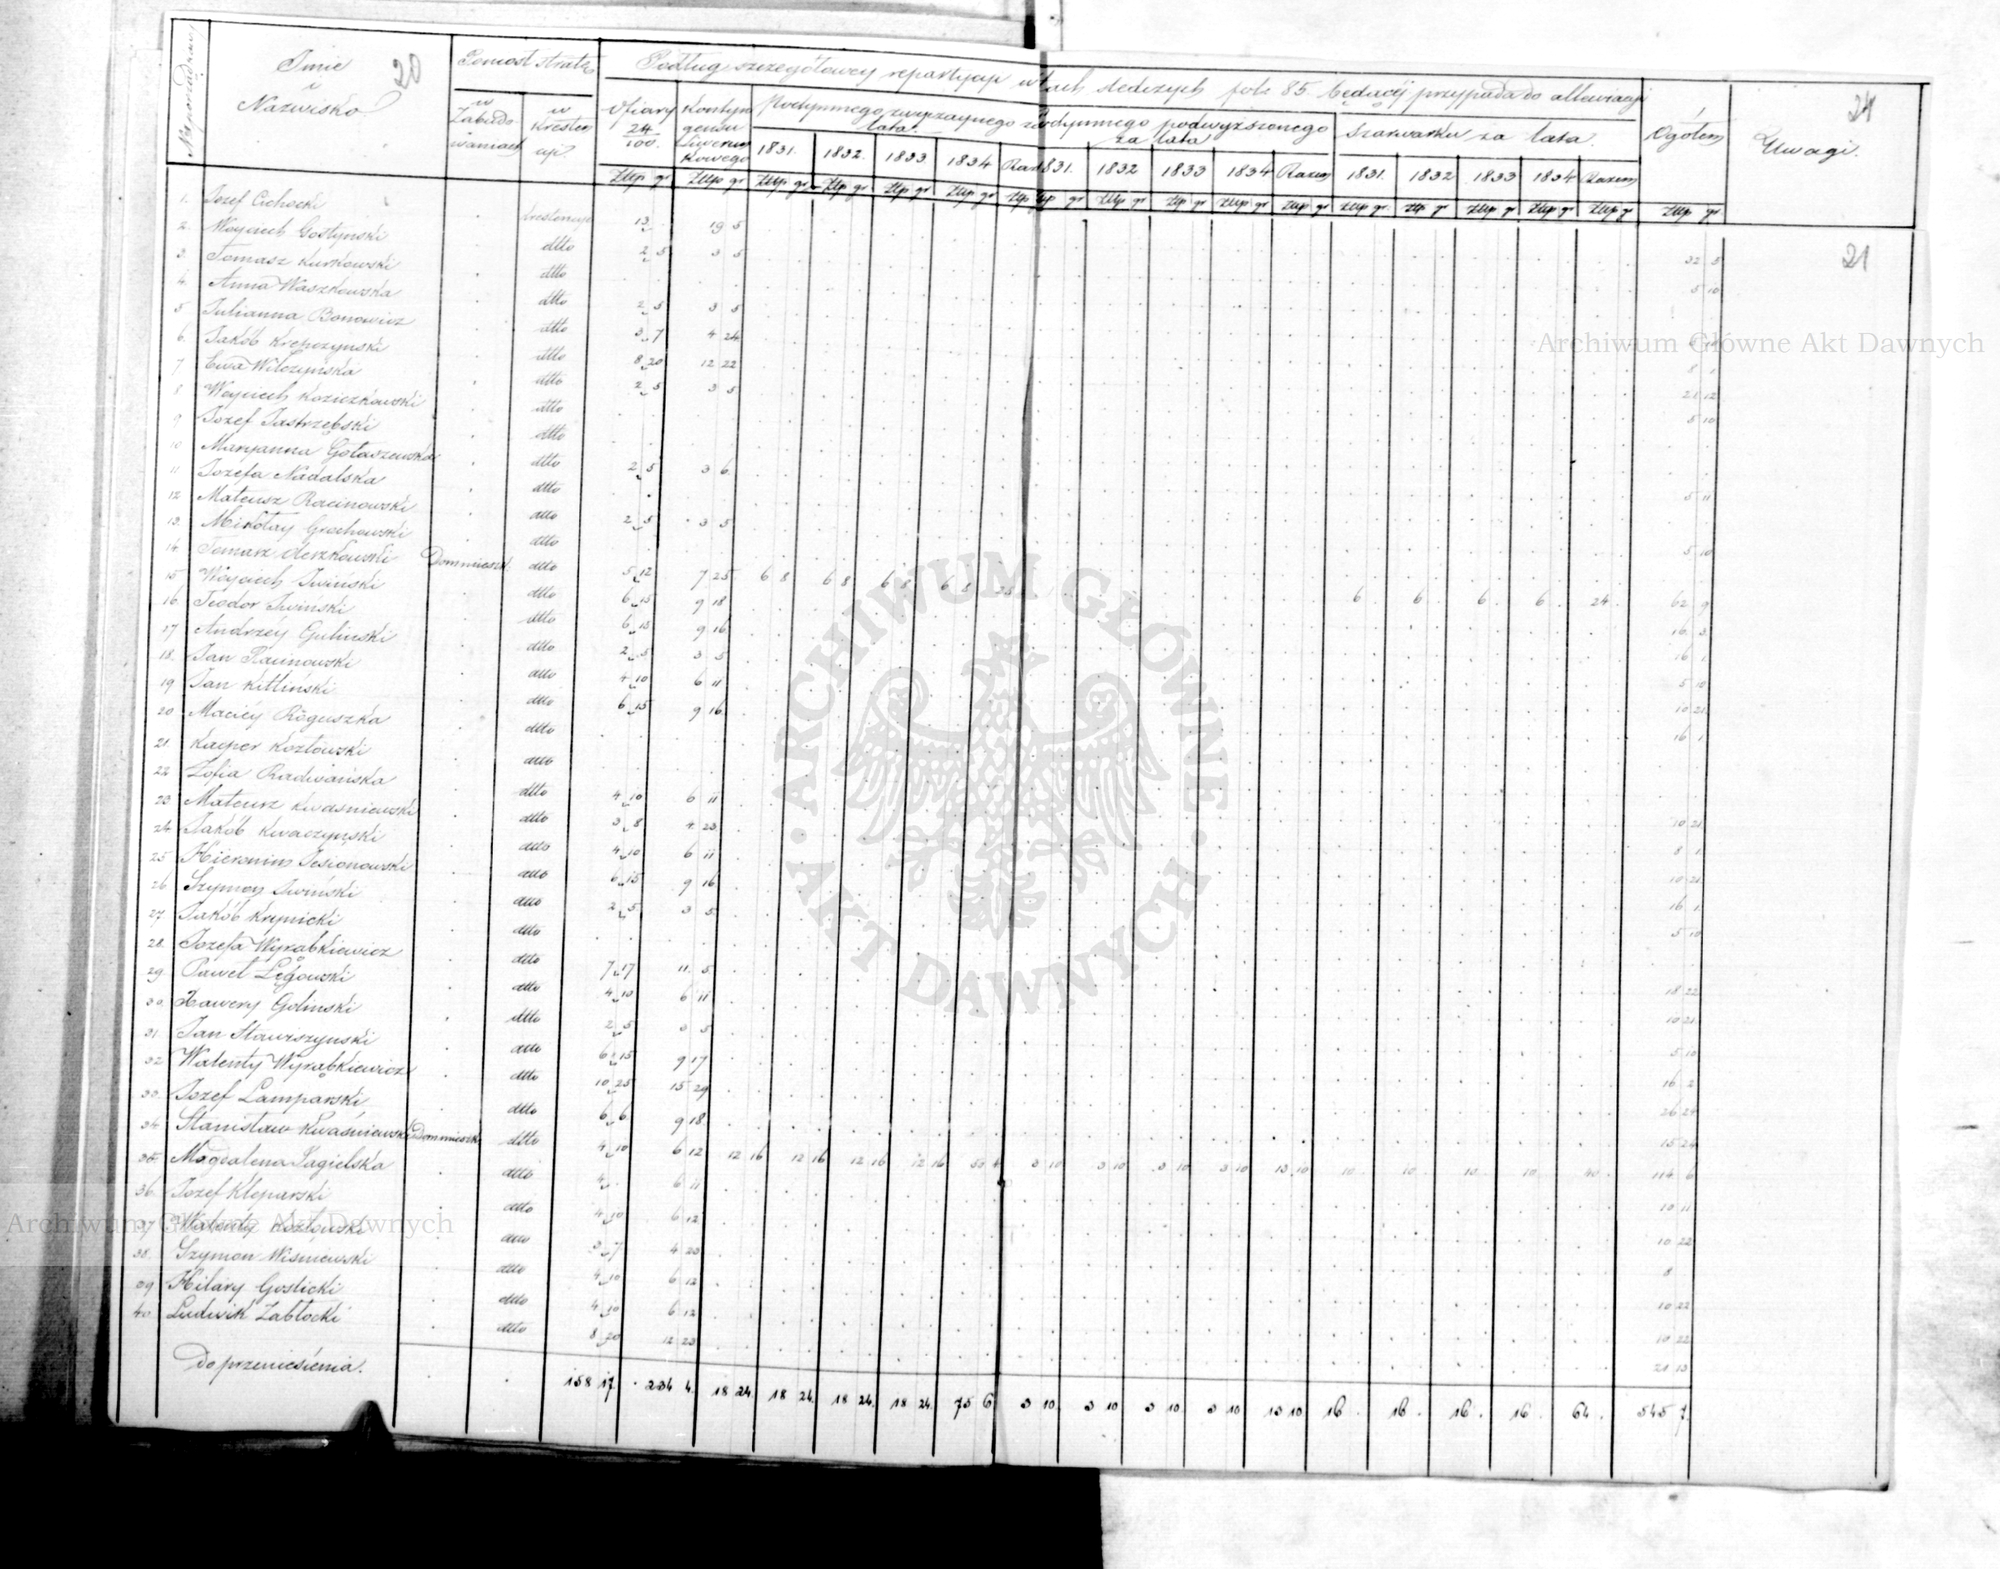 20
24
21
Imie i Nazwisko
Poniosł stratę
w Zabudowaniach
w Krestencyi
Podług szczegółowey repartycyi w tach śledczych fol: 85 będącey przypada do allewiacyi
Ofiary 24/100
Kontyngensu Liwerunkowego
Podymnego zwyczaynego za lata
Podymnego podwyższonego za lata
Szarwarku za lata.
Ogółem
Uwagi.
1831. 1832. 1833 1834 1831. 1832 1833 1834 Razem 1831. 1832 1833 1834 Razem
Złłp gr
1. Jozef Cichocki Krestencyi 13 . 19 5 32 5
2. Woyciech Gostynski dtto 2 5 3 5 5 10
3. Tomasz Kurkowski dtto
4. Anna Waszkowska dtto 2 5 3 5
5 Julianna Bonowicz dtto 3 7 4 24 8 1
6. Jakób Krepczynski dtto 8 20 12 22 21 12
7 Ewa Wilczyńska dtto 2 5 3 5 5 10
8 Woyciech Koziczkowski dtto
9 Jozef Jastrzębski dtto
10 Maryanna Gołaszewska dtto 2 5 3 6 5 11
11 Jozefa Nadalska dtto
12 Mateusz Racinowski dtto 2 5 3 5 5 10
13. Mikołay Grochowski dtto
14. Tomasz Aerzkowski Dom mieszk. dtto 5 12 7 25 6 8 6 8 6 8 6 8 6 6 6 6 24 62 9
15 Woyciech Iwiński dtto 6 15 9 18 16 3
16. Teodor Iwinski dtto 6 15 9 16 16 1
17 Andrzéy Gulinski dtto 2 5 3 5 5 10
18. Jan Racinowski dtto 4 10 6 11 10 21
19 Jan Kitliński dtto 6 15 9 16 16 1
20 Maciéy Roguszka dtto
21. Kacper Kozłowski dtto
22 Zofia Radwańska dtto 4 10 6 11 10 21
23 Mateusz Kwasniewski dtto 3 8 4 23 8 1
24 Jakób Kwaczyński dtto 4 10 6 11 10 21
25 Hieronim Jesionowski dtto 6 15 9 16 16 1
26 Szymon Iwiński dtto 2 5 3 5 5 10
27 Jakób Krynicki dtto
28. Jozefa Wyrąbkiewicz dtto 7 17 11 5 18 22
29 Paweł Łęgowski dtto 4 10 6 11 10 21
30. Xawery Golinski dtto 2 5 3 5 5 10
31 Jan Stawiszynski dtto 6 15 9 17 16 2
32 Walenty Wyrąbkiewicz dtto 10 25 15 29 26 24
33. Jozef Lamparski dtto 6 6 9 18 15 24
34 Stanisław Kwaśniewski Dom mieszk. dtto 4 10 6 12 12 16 12 16 12 16 12 16 50 4 3 10 3 10 3 10 3 10 13 10 10 10 10 10 40 114 6
35. Magdalena Jagielska dtto 4 . 6 11 10 11
36. Jozef Kleparski dtto 4 10 6 12 10 22
37 Walenty Kozłowski dtto 3 7 4 23 8
38. Szymon Wisniewski dtto 4 10 6 12 10 22
39 Hilary Goslicki dtto 4 10 6 12 10 22
40 Ludwik Zabłocki dtto 8 20 12 23 21 13
Do przeniesienia. 158 17 234 4. 18 24. 18 24. 18 24. 18 24. 75 6 3 10. 3 10 3 10 3 10 13 10 16 . 16 . 16 . 16 . 64 . 545 7
Archiwum Główne Akt Dawnych
ARCHIWUM GŁÓWNE · AKT DAWNYCH ·
Archiwum Główne Akt Dawnych